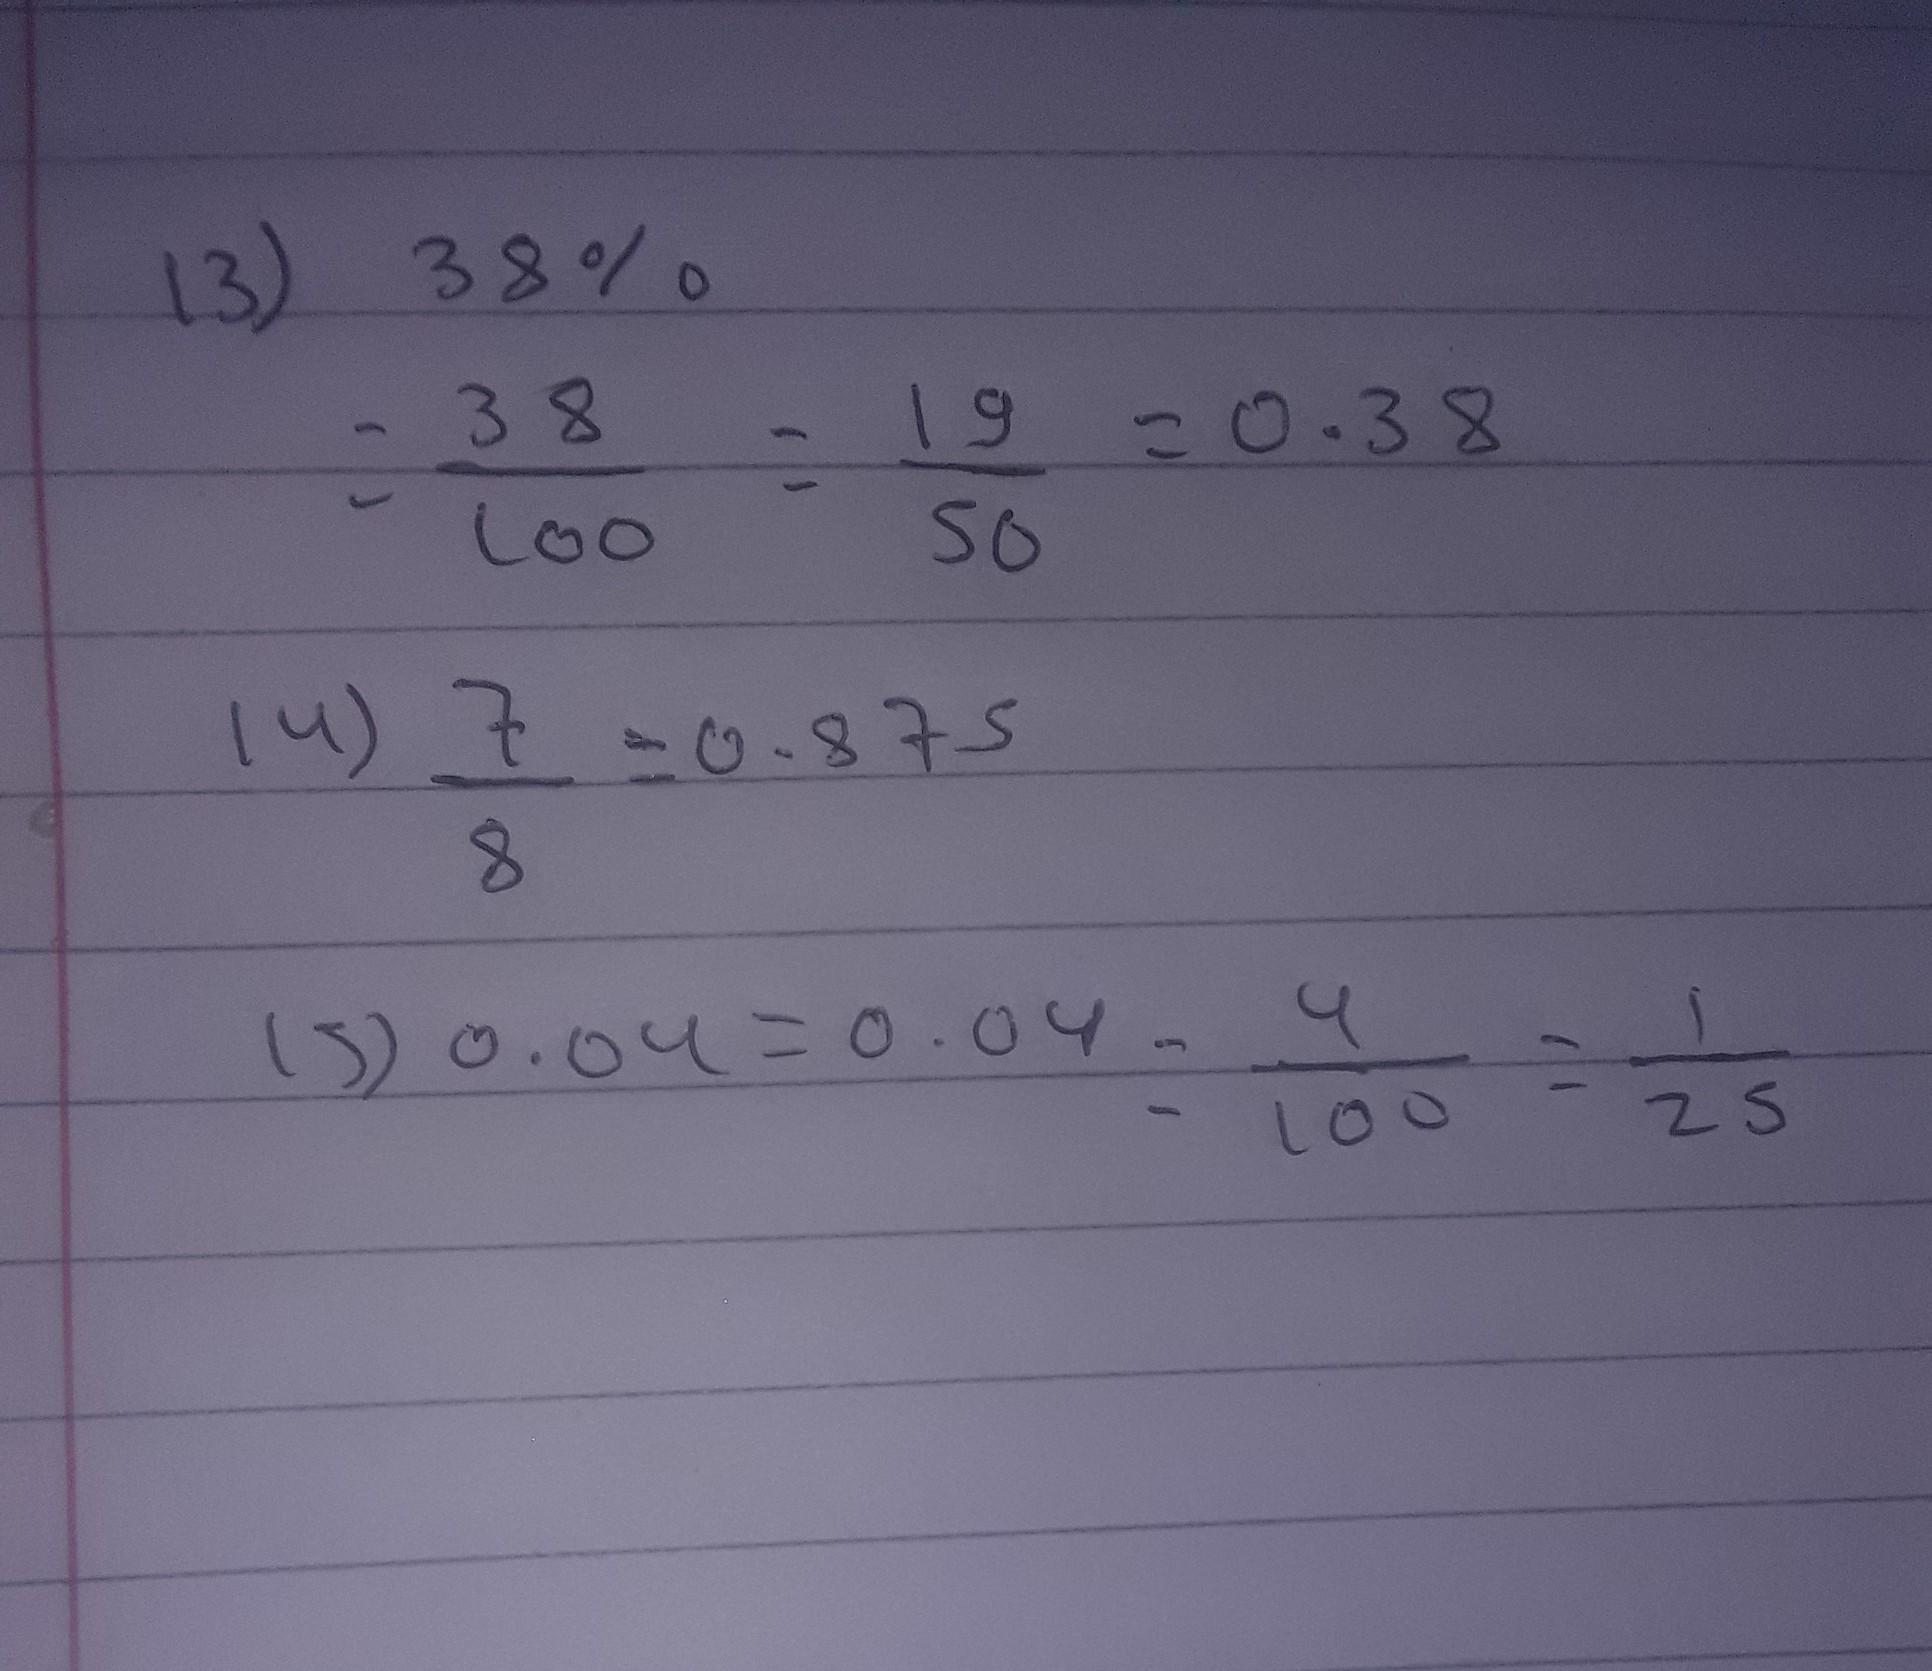 13) 38%
= 38/100 = 19/50 = 0.38
14) 7/8 = 0.875
15) 0.04 = 0.04 = 4/100 = 1/25